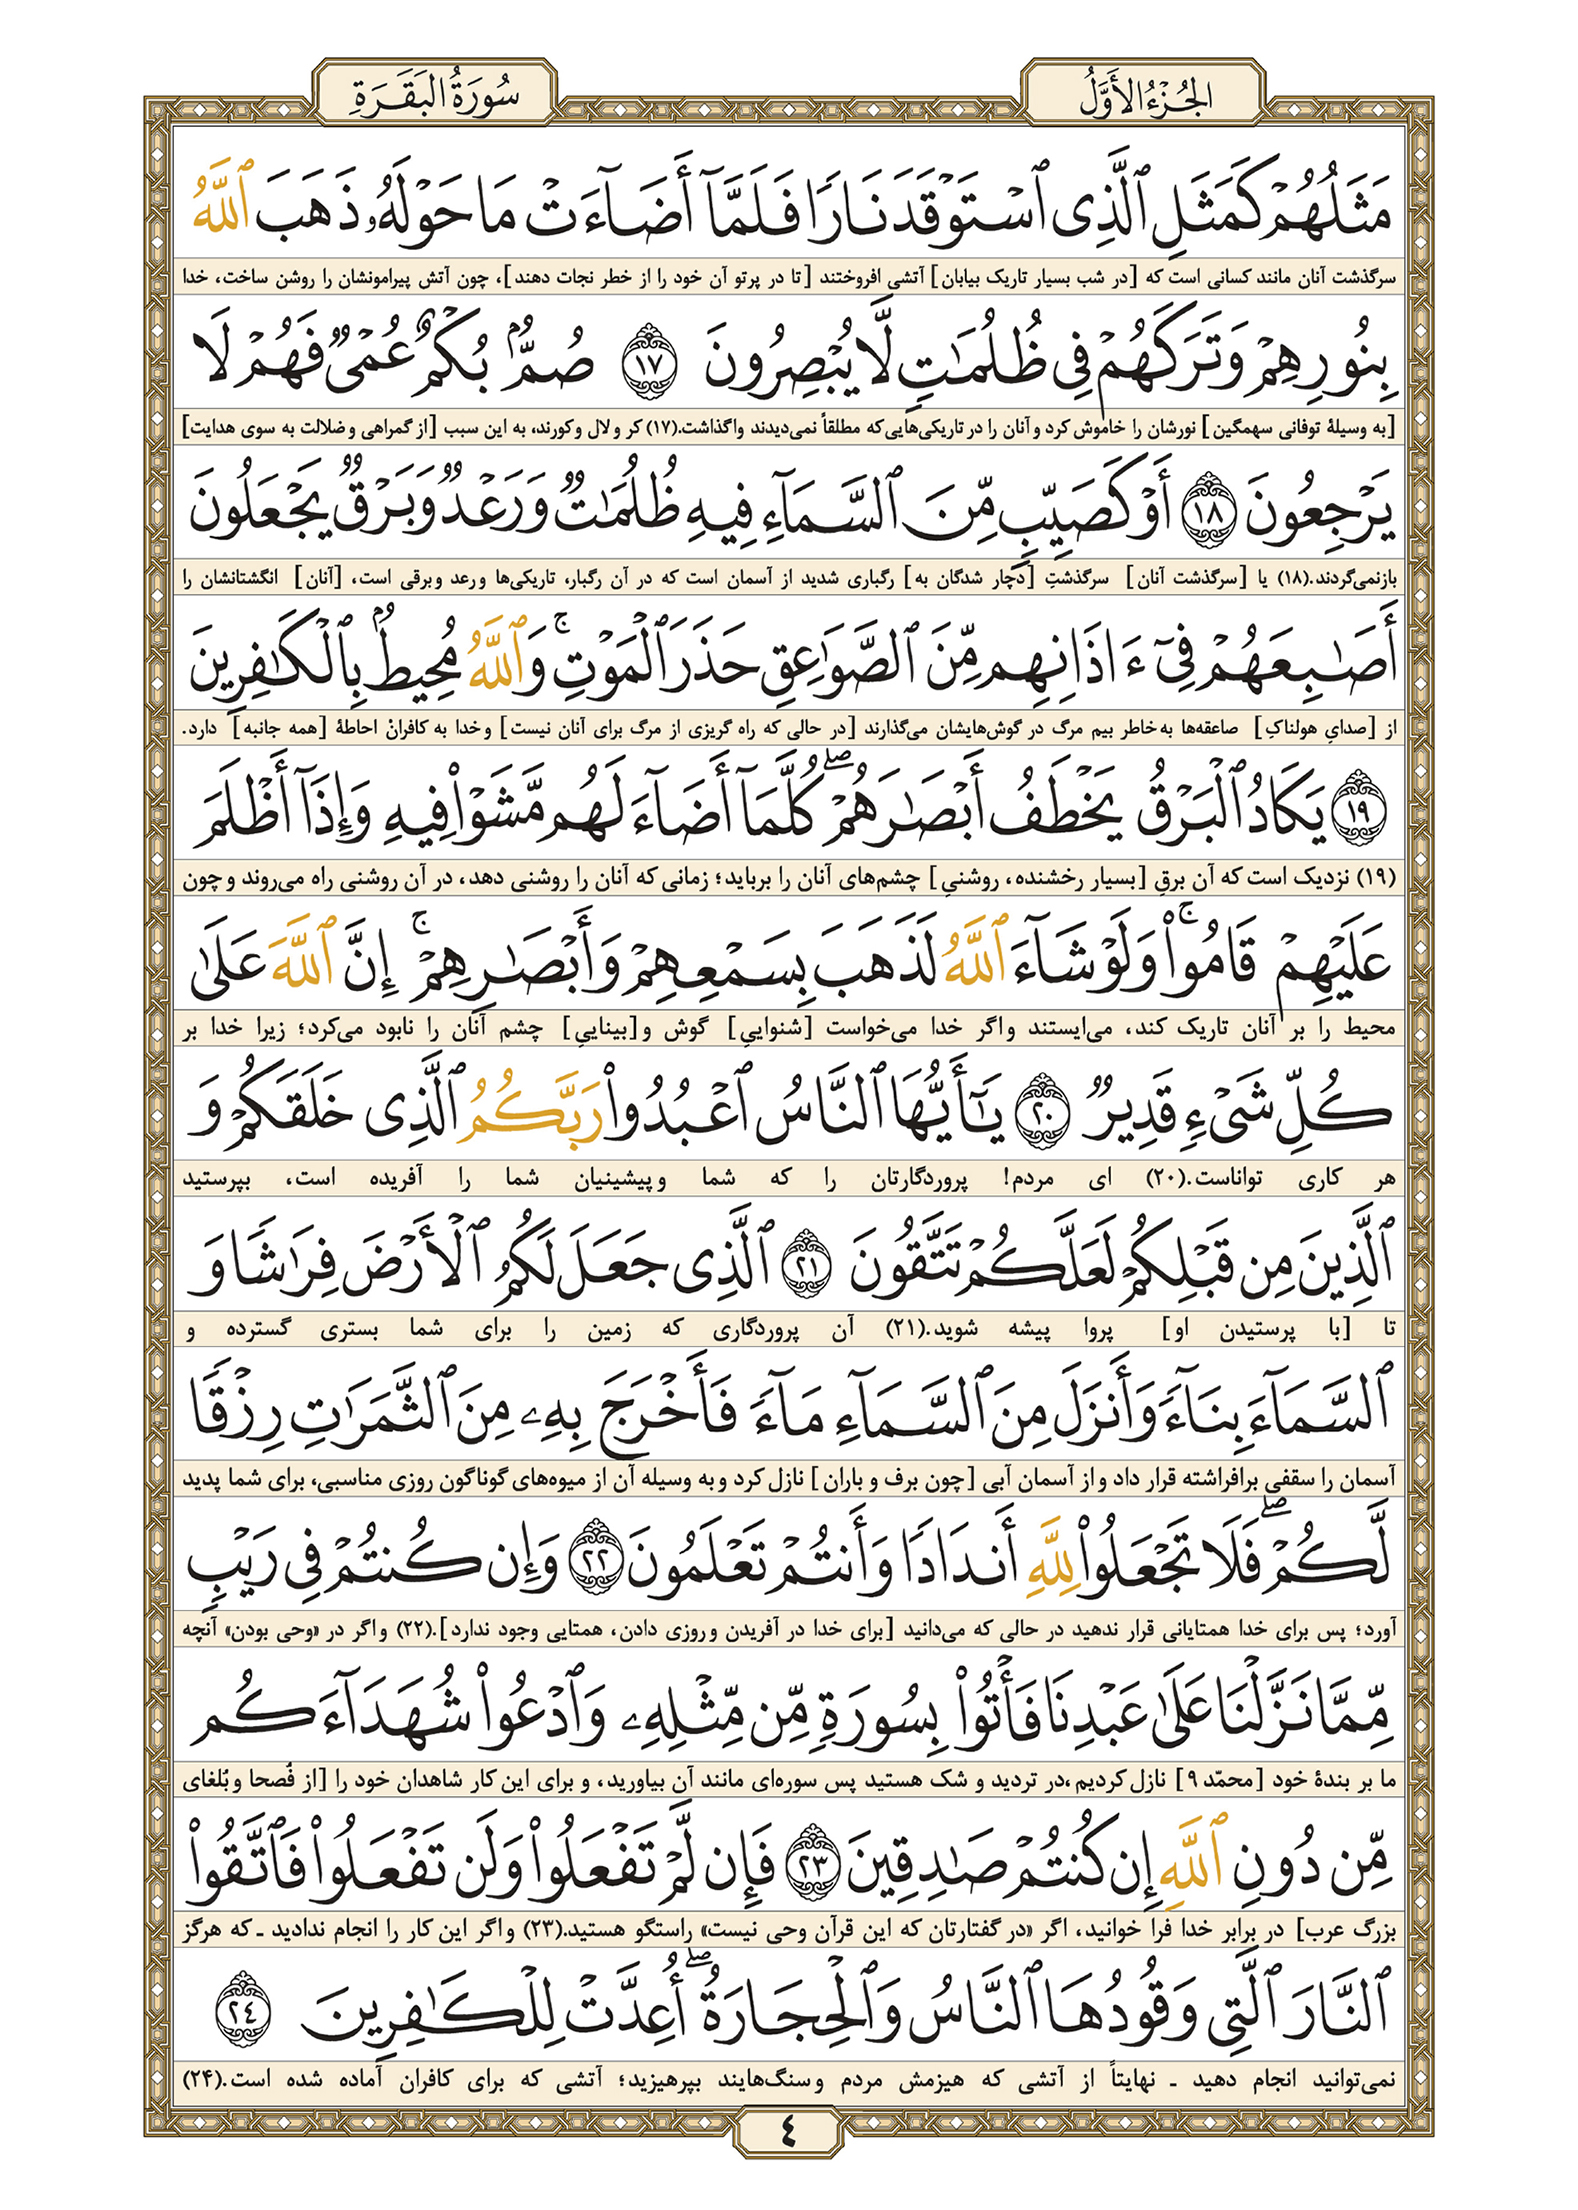 الجُزْءُ الأَوَّلُ
سُورَةُ البَقَرَةِ
مَثَلُهُمْ كَمَثَلِ ٱلَّذِى ٱسْتَوْقَدَ نَارًا فَلَمَّآ أَضَآءَتْ مَا حَوْلَهُۥ ذَهَبَ ٱللَّهُ
سرگذشت آنان مانند کسانی است که [در شب بسیار تاریک بیابان] آتشی افروختند [تا در پرتو آن خود را از خطر نجات دهند]، چون آتش پیرامونشان را روشن ساخت، خدا
بِنُورِهِمْ وَتَرَكَهُمْ فِى ظُلُمَٰتٍ لَّا يُبْصِرُونَ ١٧ صُمٌّۢ بُكْمٌ عُمْىٌ فَهُمْ لَا
[به وسیلۀ توفانی سهمگین] نورشان را خاموش کرد و آنان را در تاریکی‌هایی که مطلقاً نمی‌دیدند واگذاشت.(۱۷) کر و لال و کورند، به این سبب [از گمراهی و ضلالت به سوی هدایت]
يَرْجِعُونَ ١٨ أَوْ كَصَيِّبٍ مِّنَ ٱلسَّمَآءِ فِيهِ ظُلُمَٰتٌ وَرَعْدٌ وَبَرْقٌ يَجْعَلُونَ
بازنمی‌گردند.(۱۸) یا [سرگذشت آنان] سرگذشتِ [دچار شدگان به] رگباری شدید از آسمان است که در آن رگبار، تاریکی‌ها و رعد و برقی است، [آنان] انگشتانشان را
أَصَٰبِعَهُمْ فِىٓ ءَاذَانِهِم مِّنَ ٱلصَّوَٰعِقِ حَذَرَ ٱلْمَوْتِ ۚ وَٱللَّهُ مُحِيطٌۢ بِٱلْكَٰفِرِينَ
از [صدایِ هولناکِ] صاعقه‌ها به خاطر بیم مرگ در گوش‌هایشان می‌گذارند [در حالی که راه گریزی از مرگ برای آنان نیست] و خدا به کافرانْ احاطۀ [همه جانبه] دارد.
١٩ يَكَادُ ٱلْبَرْقُ يَخْطَفُ أَبْصَٰرَهُمْ ۖ كُلَّمَآ أَضَآءَ لَهُم مَّشَوْا۟ فِيهِ وَإِذَآ أَظْلَمَ
(۱۹) نزدیک است که آن برقِ [بسیار رخشنده، روشنیِ] چشم‌های آنان را برباید؛ زمانی که آنان را روشنی دهد، در آن روشنی راه می‌روند و چون
عَلَيْهِمْ قَامُوا۟ ۚ وَلَوْ شَآءَ ٱللَّهُ لَذَهَبَ بِسَمْعِهِمْ وَأَبْصَٰرِهِمْ ۚ إِنَّ ٱللَّهَ عَلَىٰ
محیط را بر آنان تاریک کند، می‌ایستند و اگر خدا می‌خواست [شنواییِ] گوش و [بیناییِ] چشم آنان را نابود می‌کرد؛ زیرا خدا بر
كُلِّ شَىْءٍ قَدِيرٌ ٢٠ يَٰٓأَيُّهَا ٱلنَّاسُ ٱعْبُدُوا۟ رَبَّكُمُ ٱلَّذِى خَلَقَكُمْ وَ
هر کاری تواناست.(۲۰) ای مردم! پروردگارتان را که شما و پیشینیان شما را آفریده است، بپرستید
ٱلَّذِينَ مِن قَبْلِكُمْ لَعَلَّكُمْ تَتَّقُونَ ٢١ ٱلَّذِى جَعَلَ لَكُمُ ٱلْأَرْضَ فِرَٰشًا وَ
تا [با پرستیدن او] پروا پیشه شوید.(۲۱) آن پروردگاری که زمین را برای شما بستری گسترده و
ٱلسَّمَآءَ بِنَآءً وَأَنزَلَ مِنَ ٱلسَّمَآءِ مَآءً فَأَخْرَجَ بِهِۦ مِنَ ٱلثَّمَرَٰتِ رِزْقًا
آسمان را سقفی برافراشته قرار داد و از آسمان آبی [چون برف و باران] نازل کرد و به وسیله آن از میوه‌های گوناگون روزی مناسبی، برای شما پدید
لَّكُمْ ۖ فَلَا تَجْعَلُوا۟ لِلَّهِ أَندَادًا وَأَنتُمْ تَعْلَمُونَ ٢٢ وَإِن كُنتُمْ فِى رَيْبٍ
آورد؛ پس برای خدا همتایانی قرار ندهید در حالی که می‌دانید [برای خدا در آفریدن و روزی دادن، همتایی وجود ندارد].(۲۲) و اگر در «وحی بودن» آنچه
مِّمَّا نَزَّلْنَا عَلَىٰ عَبْدِنَا فَأْتُوا۟ بِسُورَةٍ مِّن مِّثْلِهِۦ وَٱدْعُوا۟ شُهَدَآءَكُم
ما بر بندۀ خود [محمّد ۹] نازل کردیم ،در تردید و شک هستید پس سوره‌ای مانند آن بیاورید، و برای این کار شاهدان خود را [از فُصحا و بُلغای
مِّن دُونِ ٱللَّهِ إِن كُنتُمْ صَٰدِقِينَ ٢٣ فَإِن لَّمْ تَفْعَلُوا۟ وَلَن تَفْعَلُوا۟ فَٱتَّقُوا۟
بزرگ عرب] در برابر خدا فرا خوانید، اگر «در گفتارتان که این قرآن وحی نیست» راستگو هستید.(۲۳) و اگر این کار را انجام ندادید ـ که هرگز
ٱلنَّارَ ٱلَّتِى وَقُودُهَا ٱلنَّاسُ وَٱلْحِجَارَةُ ۖ أُعِدَّتْ لِلْكَٰفِرِينَ ٢٤
نمی‌توانید انجام دهید ـ نهایتاً از آتشی که هیزمش مردم و سنگ‌هایند بپرهیزید؛ آتشی که برای کافران آماده شده است.(۲۴)
٤